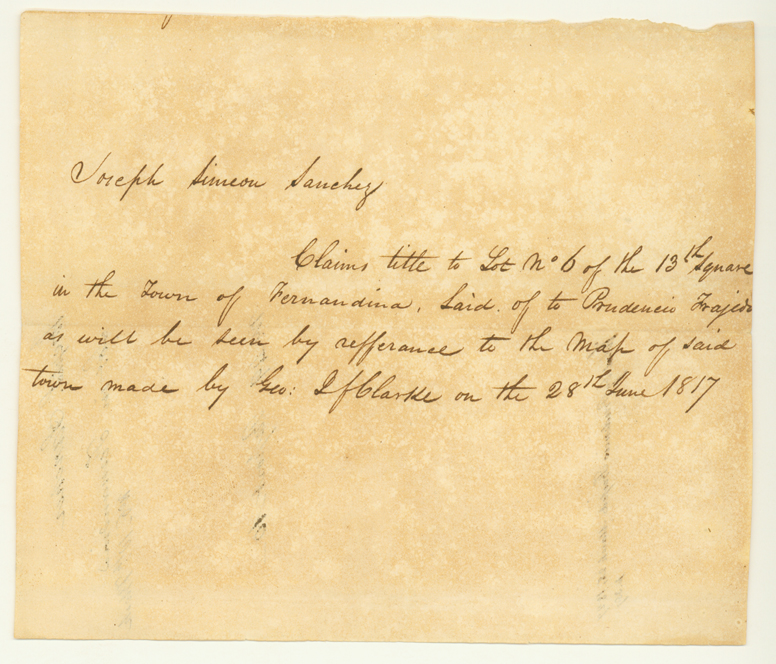 Joseph Simeon Sanchez
Claims title to Lot No 6 of the 13th Square
in the Town of Fernandina, Laid of to Prudencio
as will be seen by refferance to the Map of said
town made by Geo: I F Clarke on the 28th June 1817